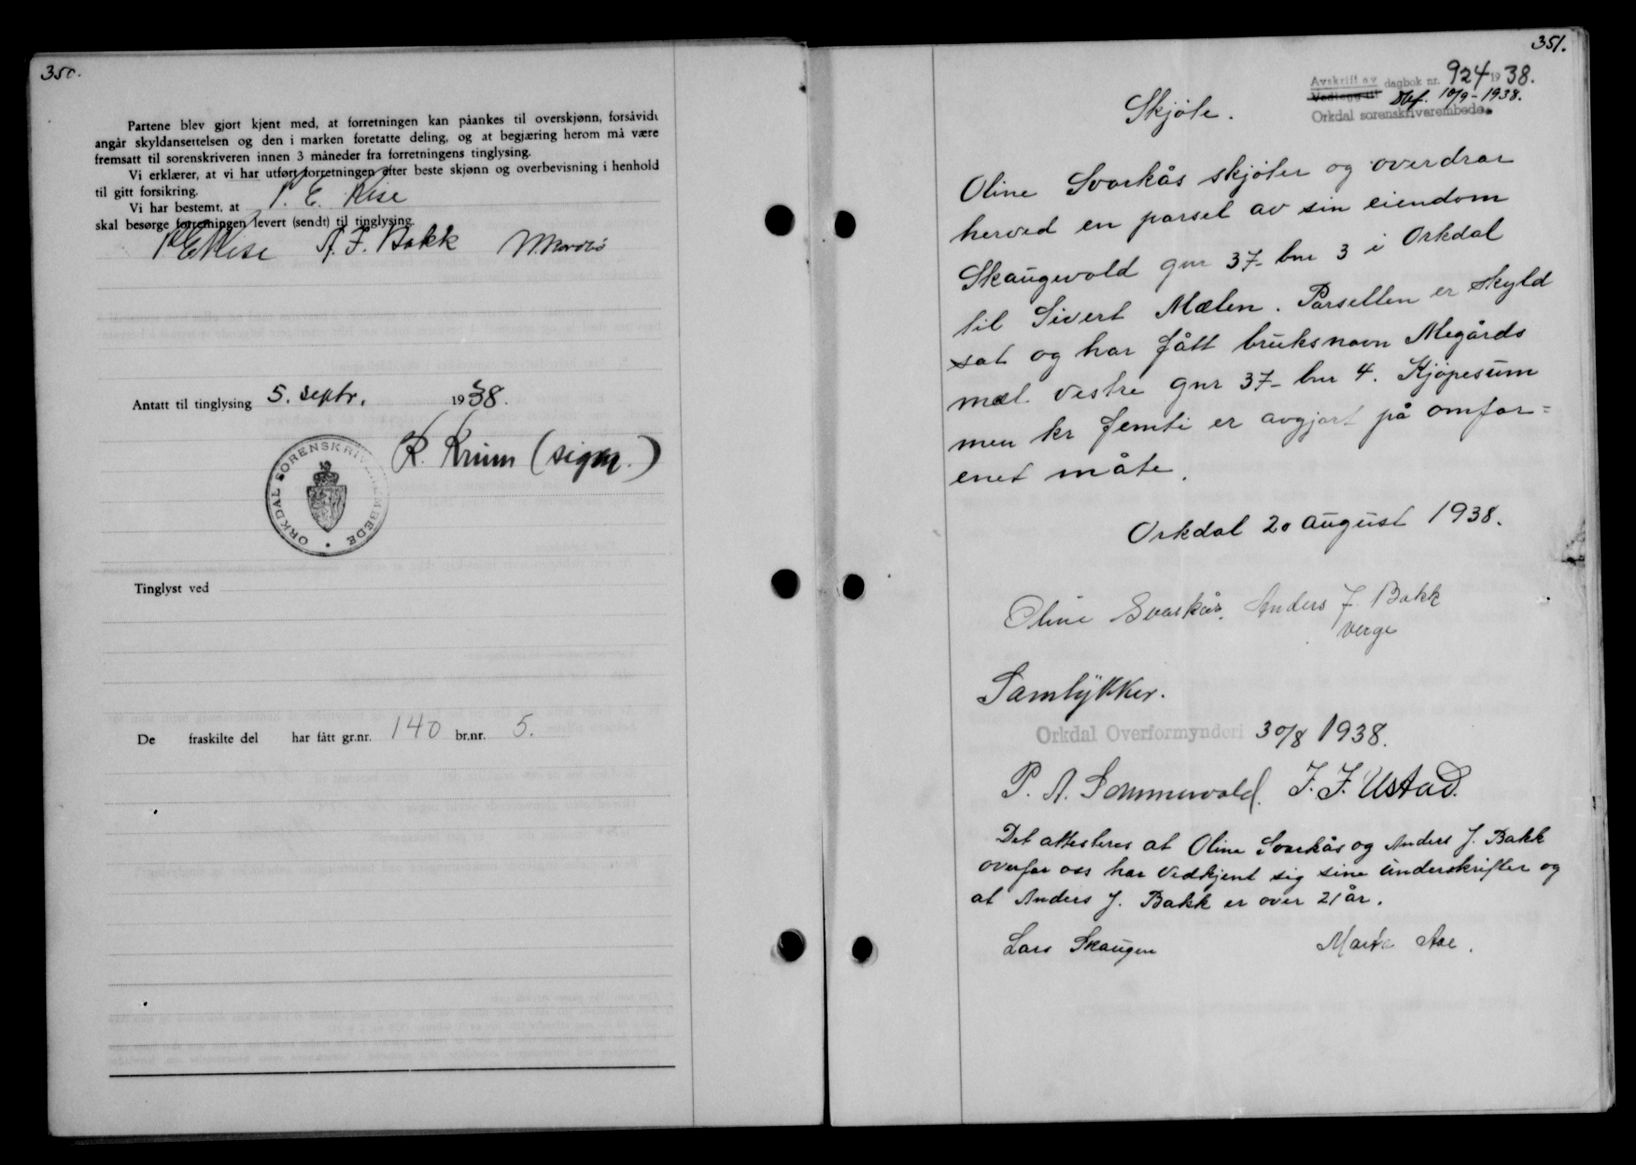 350.
Partene blev gjort kjent med, at forretningen kan påankes til overskjønn, forsåvidt
angår skyldansettelsen og den i marken foretatte deling, og at begjæring herom må være
fremsatt til sorenskriveren innen 3 måneder fra forretningens tinglysing.
Vi erklærer, at vi har utført forretningen efter beste skjønn og overbevisning i henhold
til gitt forsikring.
Vi har bestemt, at P. E. Kise
skal besørge forretningen levert (sendt) til tinglysing.
P E Kise A. J. Bakk
Antatt til tinglysing 5. septr. 1938.
R. Krium (sign.)
ORKDAL SORENSKRIVEREMBEDE
Tinglyst ved
De fraskilte del har fått gr.nr. 140 br.nr. 5.
351.
Avskrift av dagbok nr. 924 1938.
Vedlegg til 10/9-1938.
Orkdal sorenskriverembede.
Skjøte.
Oline Svorkås skjøter og overdrar
herved en parsel av sin eiendom
Skaugevold gnr 37- bnr 3 i Orkdal
til Sivert Mælen. Parsellen er skyld
sat og har fått bruksnavn Megårds
mæl vestre gnr 37- bnr 4. Kjøpesum
men kr femti er avgjort på omfor=
enet måte.
Orkdal 20 august 1938.
Oline Svorkås. Anders J. Bakk
verge
Samtykker.
Orkdal Overformynderi 30/8 1938.
P. A. Sommervold. J. J. Ustad.
Det attesteres at Oline Svorkås og Anders J. Bakk
overfor oss har vedkjent sig sine underskrifter og
at Anders J. Bakk er over 21 år.
Lars Skaugen Marie Aae.